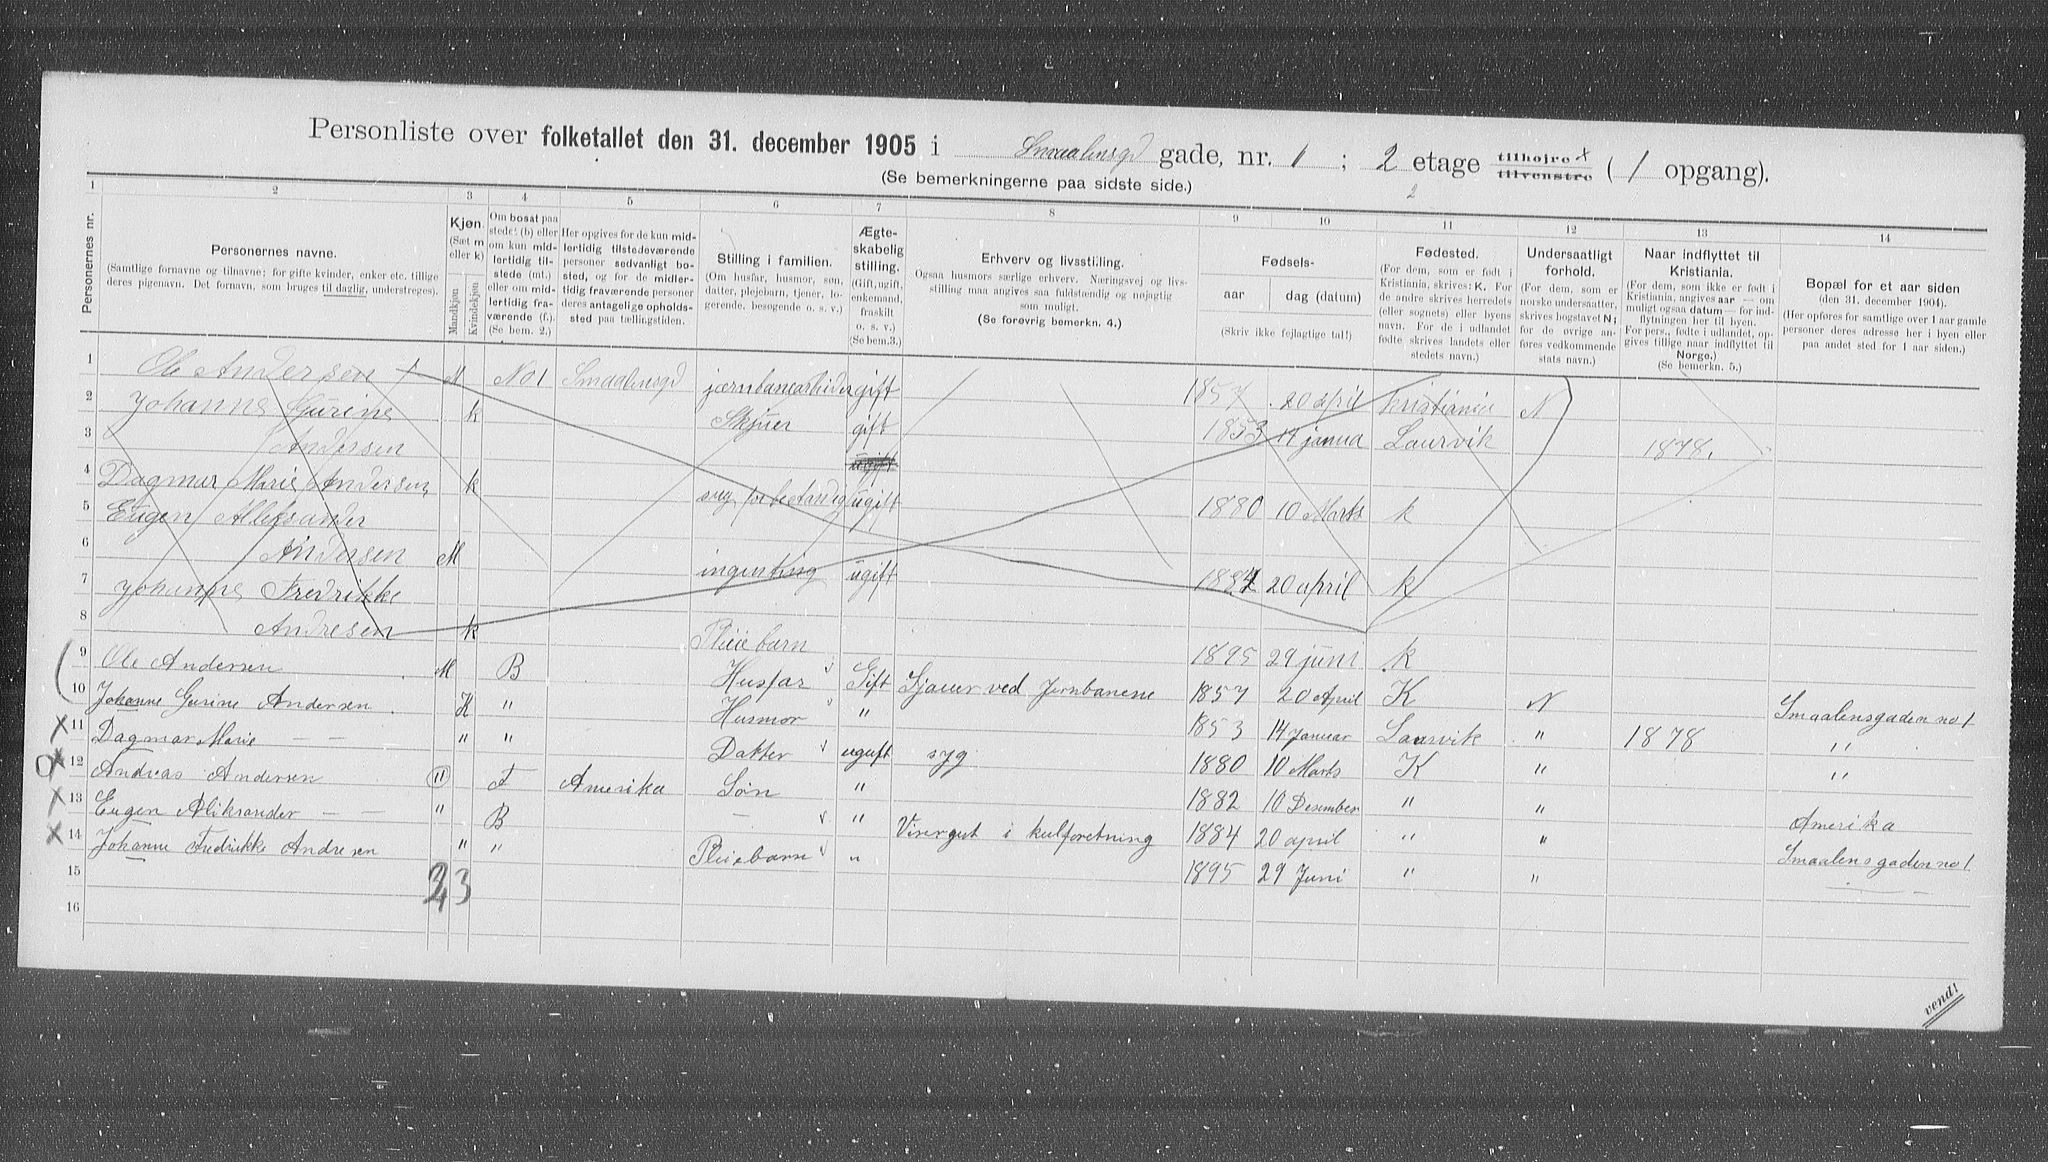 Personliste over folketallet den 31. december 1905 i Smaalensgd gade, nr. 1 ; 2 etage tilhøire x tilvenstre ( 1 opgang).
(Se bemerkningerne paa sidste side.) 2
1 2 3 4 5 6 7 8 9 10 11 12 13 14
Personernes nr.
Personernes navne.
(Samtlige fornavne og tilnavne; for gifte kvinder, enker etc. tillige
deres pigenavn. Det fornavn, som bruges til daglig, understreges).
Kjøn.
(Sæt m
eller k)
Mandkjøn
Kvindekjøn
Om bosat paa
stedet (b) eller
om kun mid-
lertidig til-
stede (mt.)
eller om mid-
lertidig fra-
værende (f.).
(Se bem. 2.)
Her opgives for de kun mid-
lertidig tilstedeværende
personer sedvanligt bo-
sted, og for de midler-
tidig fraværende personer
deres antagelige opholds-
sted paa tællingstiden.
Stilling i familien.
(Om husfar, husmor, søn,
datter, plejebarn, tjener, lo-
gerende, besøgende o. s. v.)
Ægte-
skabelig
stilling.
(Gift, ugift,
enkemand,
fraskilt
o. s. v.)
(Se bem.3.)
Erhverv og livsstilling.
Ogsaa husmors særlige erhverv. Næringsvej og livs-
stilling maa angives saa fuldstændig og nøjagtig
som muligt.
(Se forøvrig bemerkn. 4.)
Fødsels-
aar dag (datum)
(Skriv ikke fejlagtige tal!)
Fødested.
(For dem, som er født i
Kristiania, skrives: K. For
de andre skrives herredets
(eller sognets) eller byens
navn. For de i udlandet
fødte skrives landets eller
stedets navn.)
Undersaatligt
forhold.
(For dem, som er
norske undersaatter,
skrives bogstavet N;
for de øvrige an-
føres vedkommende
stats navn.)
Naar indflyttet til
Kristiania.
(For dem, som ikke er født i
Kristiania, angives aar — om
muligt ogsaa datum — for ind-
flytningen her til byen.
For pers., fødte i udlandet, op-
gives tillige naar indflyttet til
Norge.)
(Se bemerkn. 5.)
Bopæl for et aar siden
(den 31. december 1904).
(Her opføres for samtlige over 1 aar gamle
personer deres adresse her i byen eller
paa andet sted for 1 aar siden.)
1 Ole Andersen M No 1 Smaalensgd jærnbanearbeider gift 1857 20 april Kristiania N
2 Johanne Gurine k Skjuer gift 1853 14 janua Laurvik 1878.
3 Andersen ugift
4 Dagmar Marie Andersen k ugift 1880 10 Marts k
5 Eugen Alleksander
6 Andersen M ingenting ugift 1884 20 april k
7 Johanne Fredrikke
8 Andresen k Pleiebarn 1895 29 juni k
9 Ole Andersen M B Husfar Gift Sjauer ved Jernbanene 1857 20 April K N Smaalensgaden no 1
10 Johanne Gurine Andersen K " Husmor " 1853 14 Januar Laurvik " 1878 "
11 Dagmar Marie — — " " Datter ugift syg 1880 10 Marts K " "
12 Andreas Andersen " F Amerika Søn " 1882 10 Desember " " Amerika
13 Eugen Aliksander — — " B — " Visergut i kulforetning 1884 20 april " " Smaalensgaden no 1
14 Johanne Fredrikke Andresen " " Pleiebarn " 1895 29 Juni " " — —
15 3
16
vend!